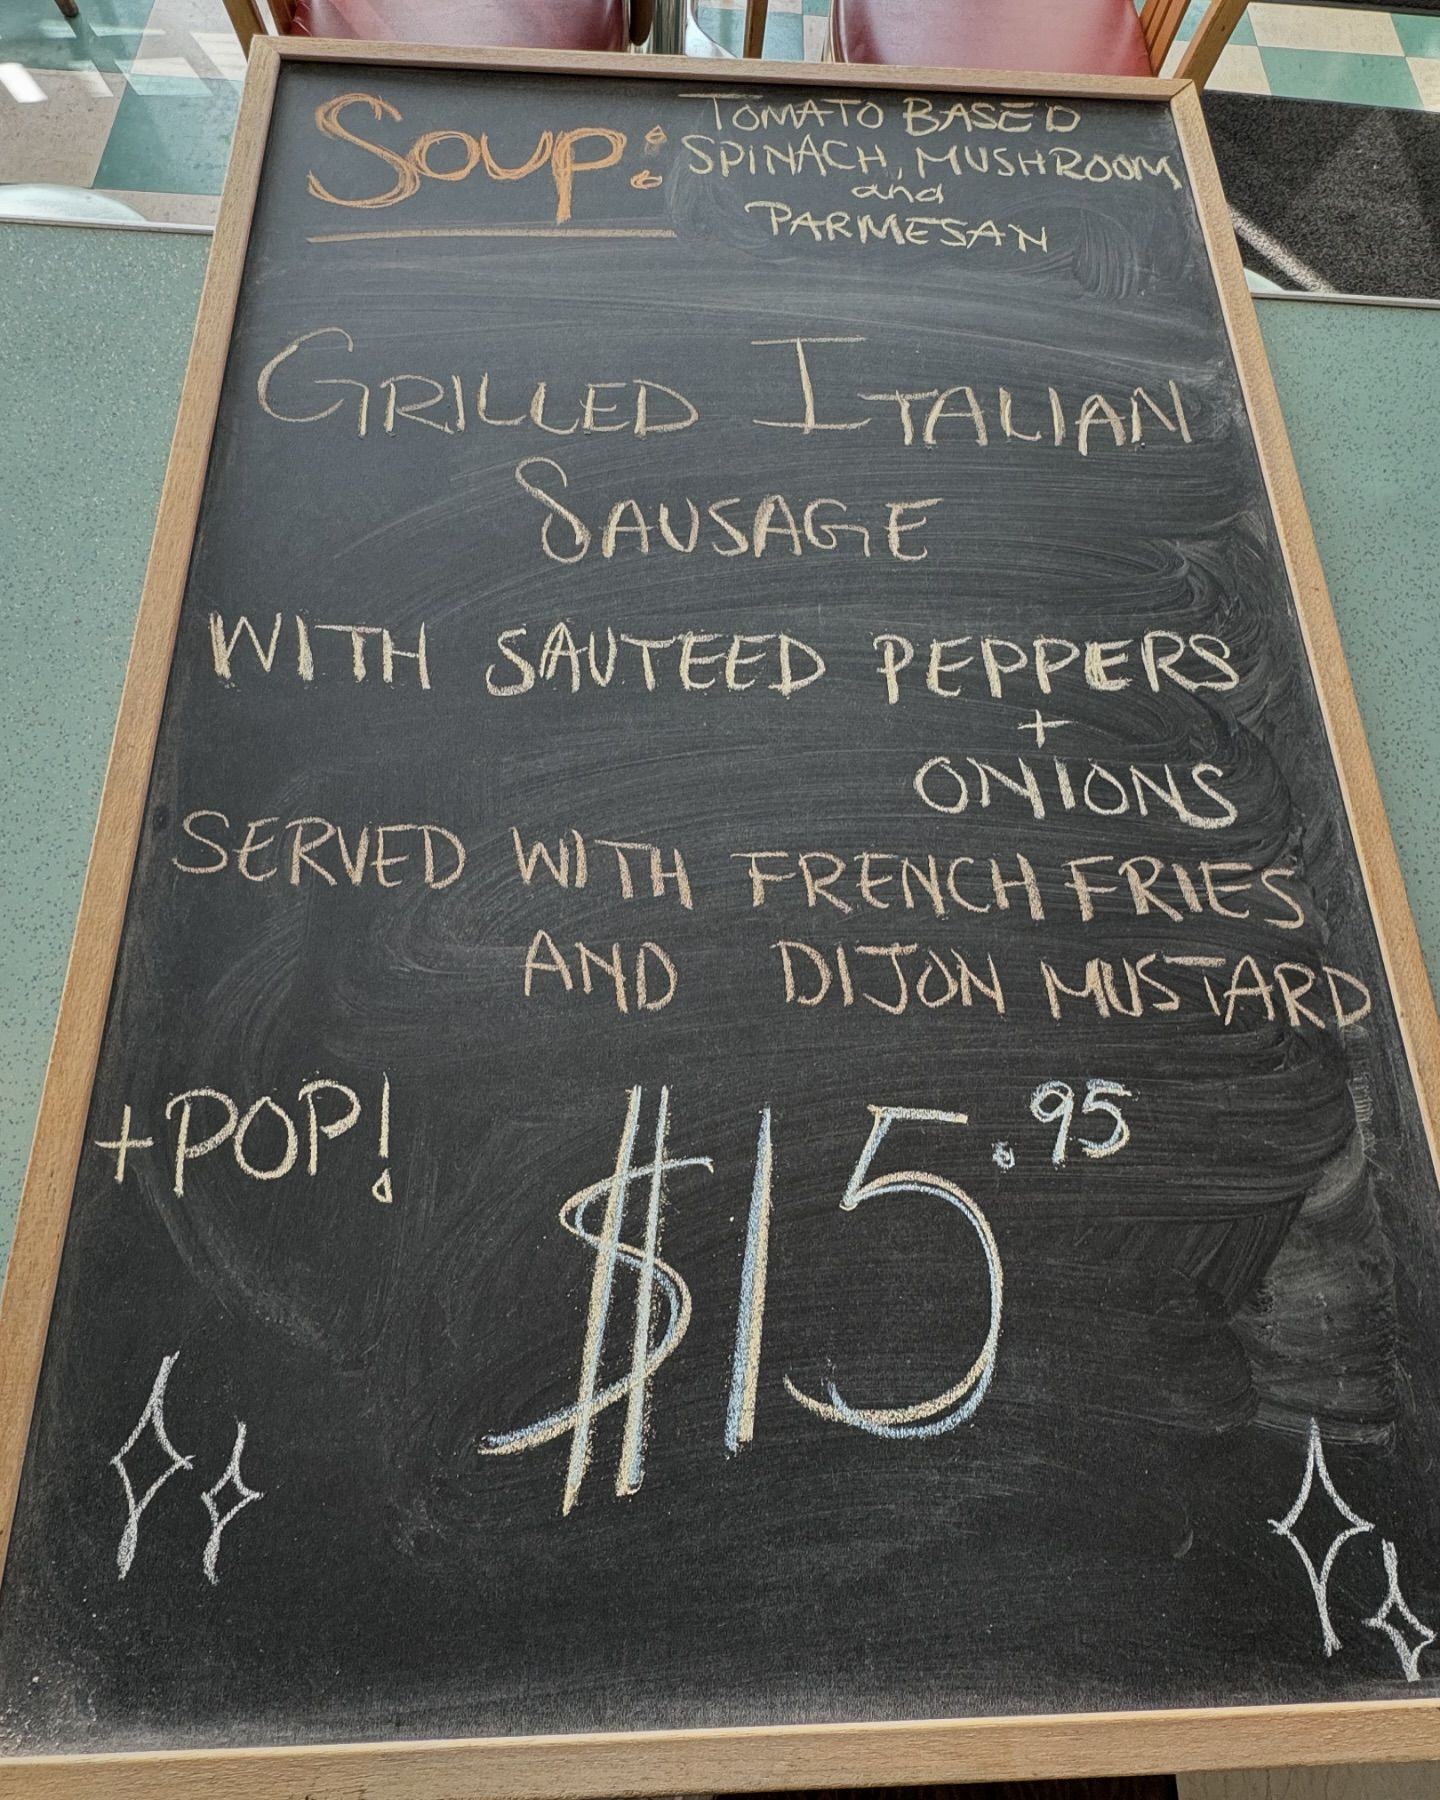 Soup: TOMATO BASED
SPINACH, MUSHROOM
and
PARMESAN
GRILLED ITALIAN
SAUSAGE
WITH SAUTEED PEPPERS
+
ONIONS
SERVED WITH FRENCH FRIES
AND DIJON MUSTARD
+POP!
$15.95